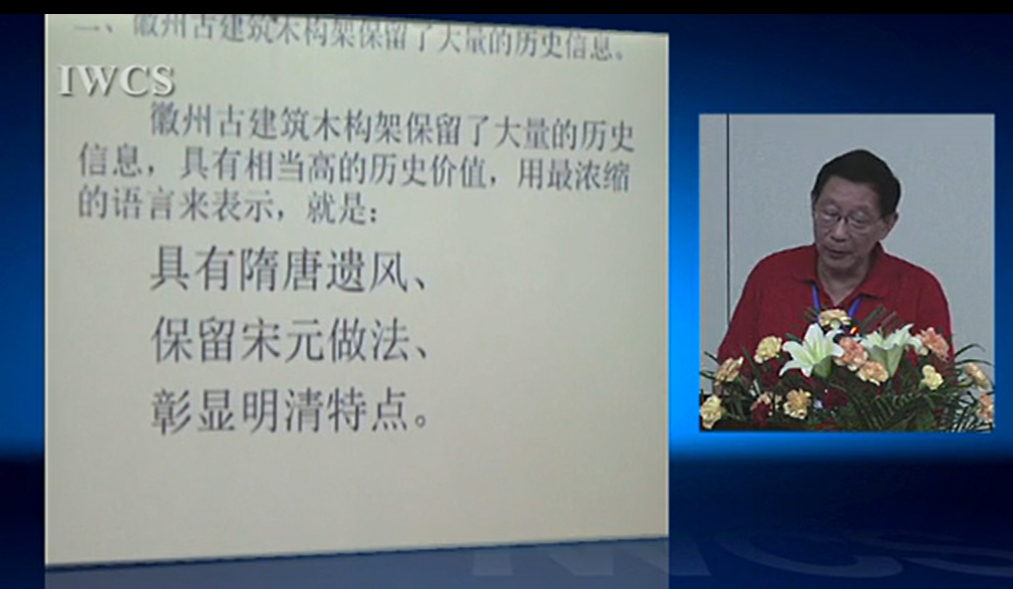 二、徽州古建筑木构架保留了大量的历史信息。
IWCS
徽州古建筑木构架保留了大量的历史
信息，具有相当高的历史价值，用最浓缩
的语言来表示，就是：
具有隋唐遗风、
保留宋元做法、
彰显明清特点。
IWCS